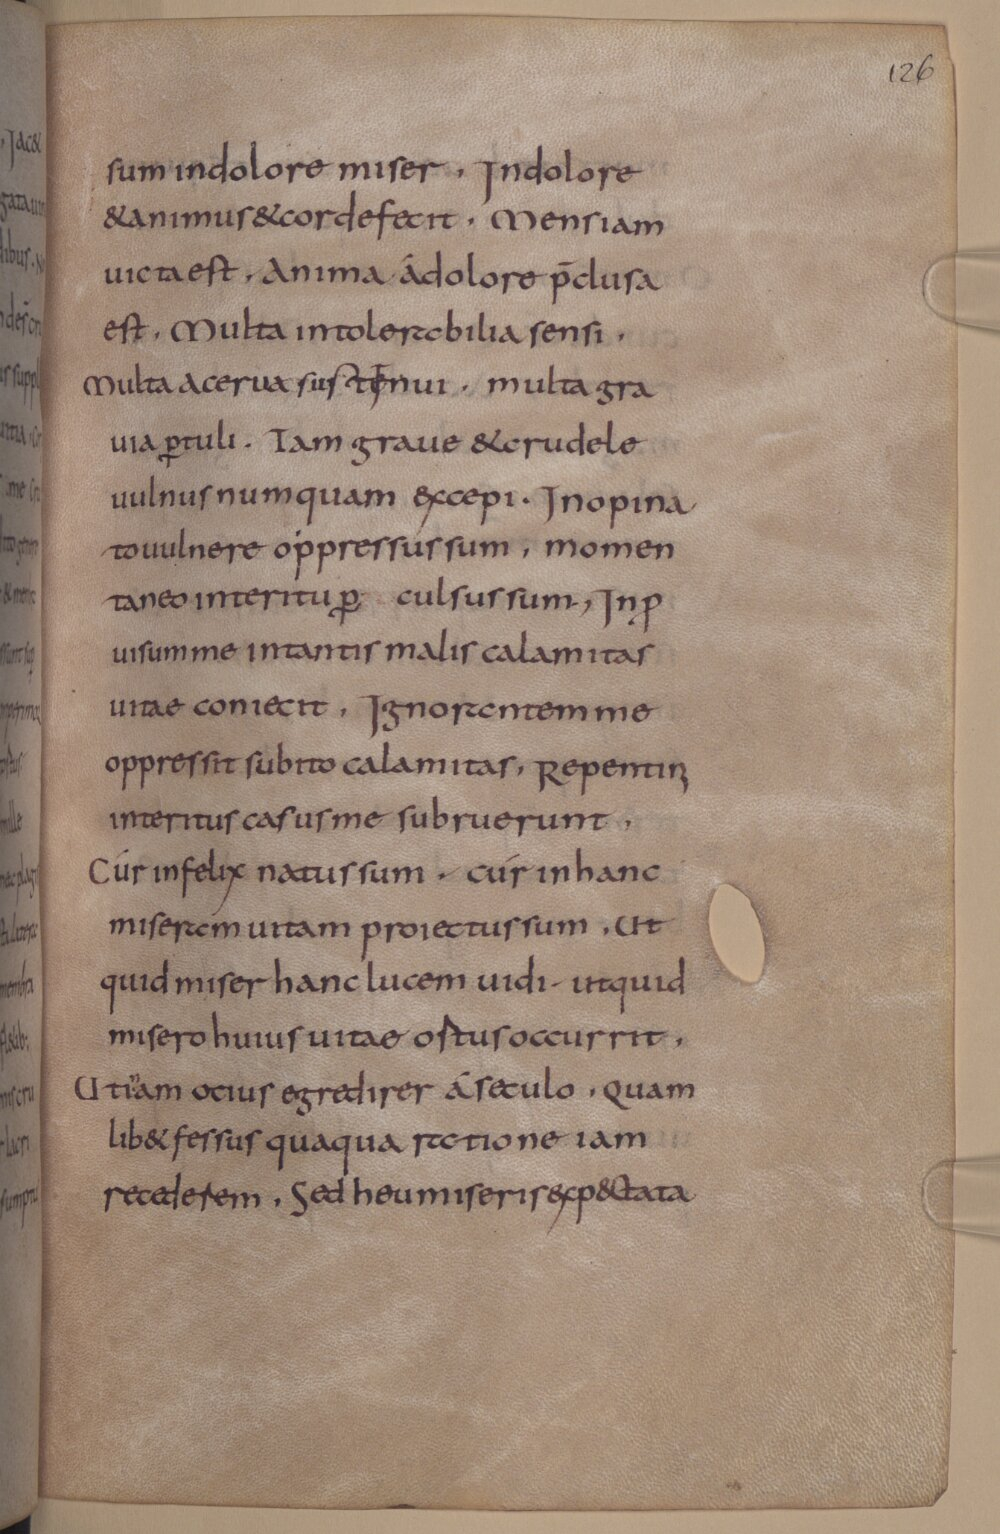 126
sum indolore miser. Indolore
&animus&cordefecit. Mens iam
uicta est. Anima ádolore p̄clusa
est. Multa intolerabilia sensi.
Multa acerua sustęnui. multa gra
uia ꝑtuli. Iam graue &crudele
uulnus numquam excepi. Inopina
to uulnere oppressus sum, momen
taneo interitu ꝑ culsus sum, Inꝓ
uisum me intantis malis calamitas
uitae coniecit. Ignorantem me
oppressit subito calamitas. Repentini
interitus casus me subruerunt.
Cúr infelix natus sum. cúr inhanc
miseram uitam proiectus sum. Ut
quid miser hanc lucem uidi. utquid
misero huius uitae ostus occurrit.
Utinam ocius egredirer áseculo. Quam
lib& fessus quaqua ratione iam
recederem. Sed heu miseris exp&ctata